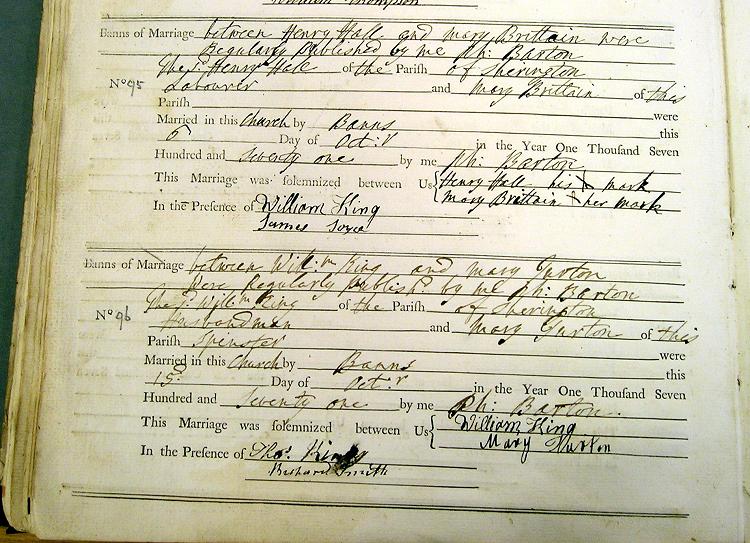 Banns of Marriage between Henry Hall and Mary Brittain were
Regularly Published by me Ph: Barton
The sd. Henry Hall of the Parish of Sherington
No 95 Labourer and Mary Brittain of this
Parish were
Married in this Church by Banns this
6 Day of Oct:r in the Year One Thousand Seven
Hundred and Seventy one by me Ph: Barton
This Marriage was solemnized between Us { Henry Hall his X mark
Mary Brittain X her mark
In the Presence of William King
James Joyce
Banns of Marriage between Will:m King and Mary Gurton
were Regularly Publish'd by me Ph: Barton
The sd. Will:m King of the Parish of Sherington
No 96 Husbandman and Mary Gurton of this
Parish Spinster were
Married in this Church by Banns this
15 Day of Oct:r in the Year One Thousand Seven
Hundred and Seventy one by me Ph: Barton
This Marriage was solemnized between Us { William King
Mary
In the Presence of Thos. King
Richard Smith